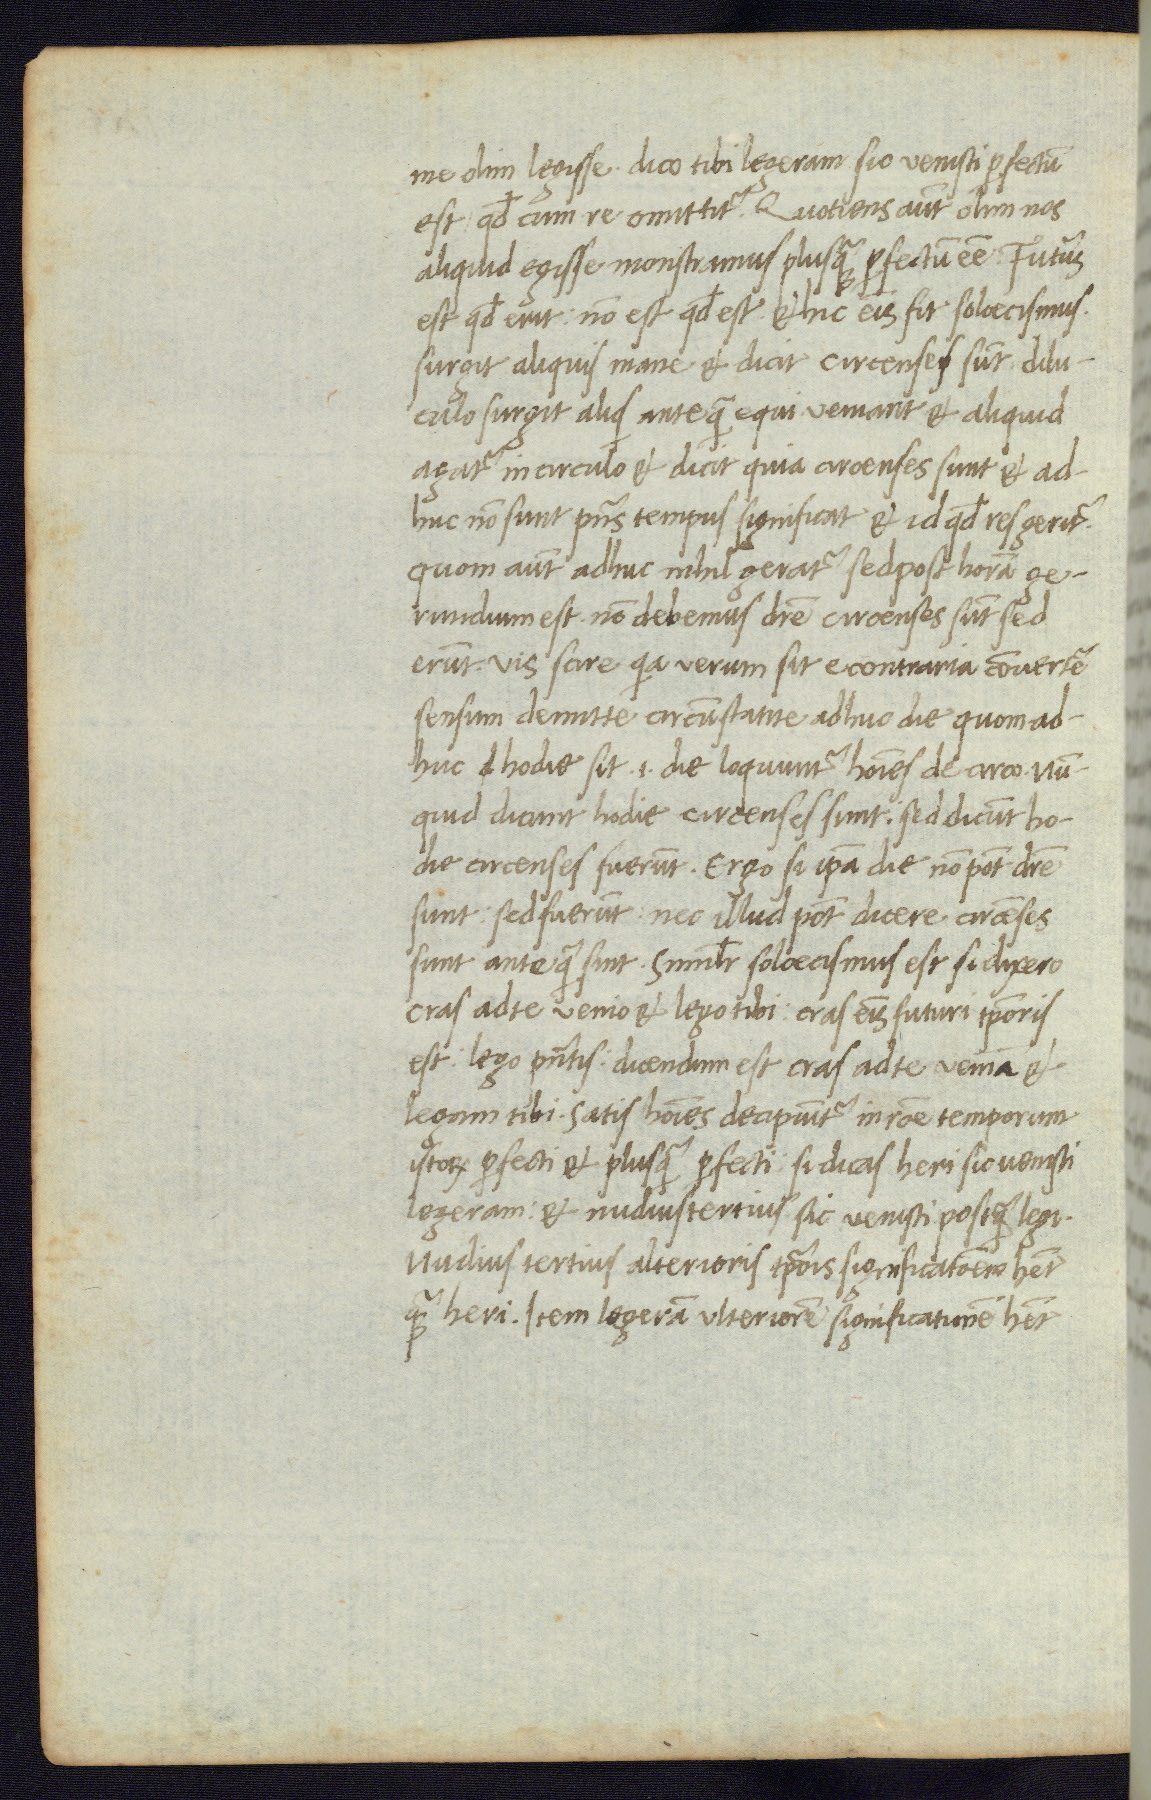 me olim legisse. dico tibi legeram sic venisti ꝑfectū
est qđ cum re omittit᷑. Quotiens aūt olim nos
aliquid egisse monstramus plusq̄ ꝑfectū eē. Futuꝝ
est qđ erit: nō est qđ est. & hic eīs fit soloecismus.
surgit aliquis mane & dicit circenses sūt dilu-
culo surgit aliqs anteq̄ equi veniant & aliquid
agat᷑ in circulo & dicit quia circenses sunt & ad-
huc nō sunt pn̄s tempus significat & id qđ res gerit᷑.
quom aūt adhuc nihil gerat᷑ sed post horā ge-
rundum est. nō debemus drē circenses sūt sed
erūt. vis scire qa verum sit e contraria cōuerte
sensum demitte circūstante adhuc die quom ad-
huc hodie sit .i. die loquunt᷑ hoīes de circo. Nū-
quid dicunt hodie circenses sunt: sed dicūt ho-
die circenses fuerūt. Ergo si ip̄a die nō pōt drē
sunt: sed fuerūt: nec illud pōt dicere circēses
sunt anteq̄ sint. Simil̄r soloecismus est si dixero
cras ad te venio & lego tibi: cras eīs futuri tp̄oris
est: lego pn̄tis: dicendum est cras ad te veniā &
legam tibi. Satis hoīes decipiūt᷑ in rōe temporum
istoꝝ ꝑfecti & plusq̄ ꝑfecti: si dicas heri sic uenisti
legeram: & nudiustertius sic venisti postq̄ legi.
Nudius tertius alterioris tp̄ois significatōem hēt
q̄ heri. Item legerā vlteriorē significationē hēt